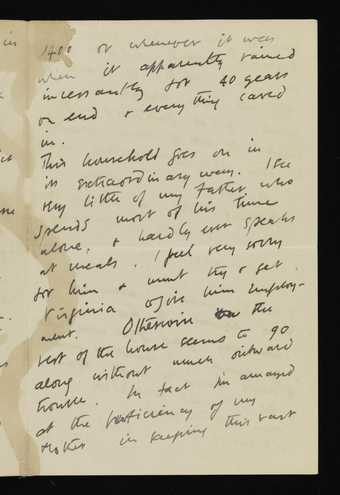 1400 or whenever it was
when it apparently rained
incessantly for 40 years
on end & everything caved
in.
This household goes on in
its extraordinary way. I see
very little of my father, who
spends most of his time
alone, & hardly ever speaks
at meals. I feel very sorry
for him & must try & get
Virginia to give him employ-
ment. Otherwise the
rest of the house seems to go
along without much outward
trouble. In fact I'm amazed
at the proficiency of my
mother in keeping this vast